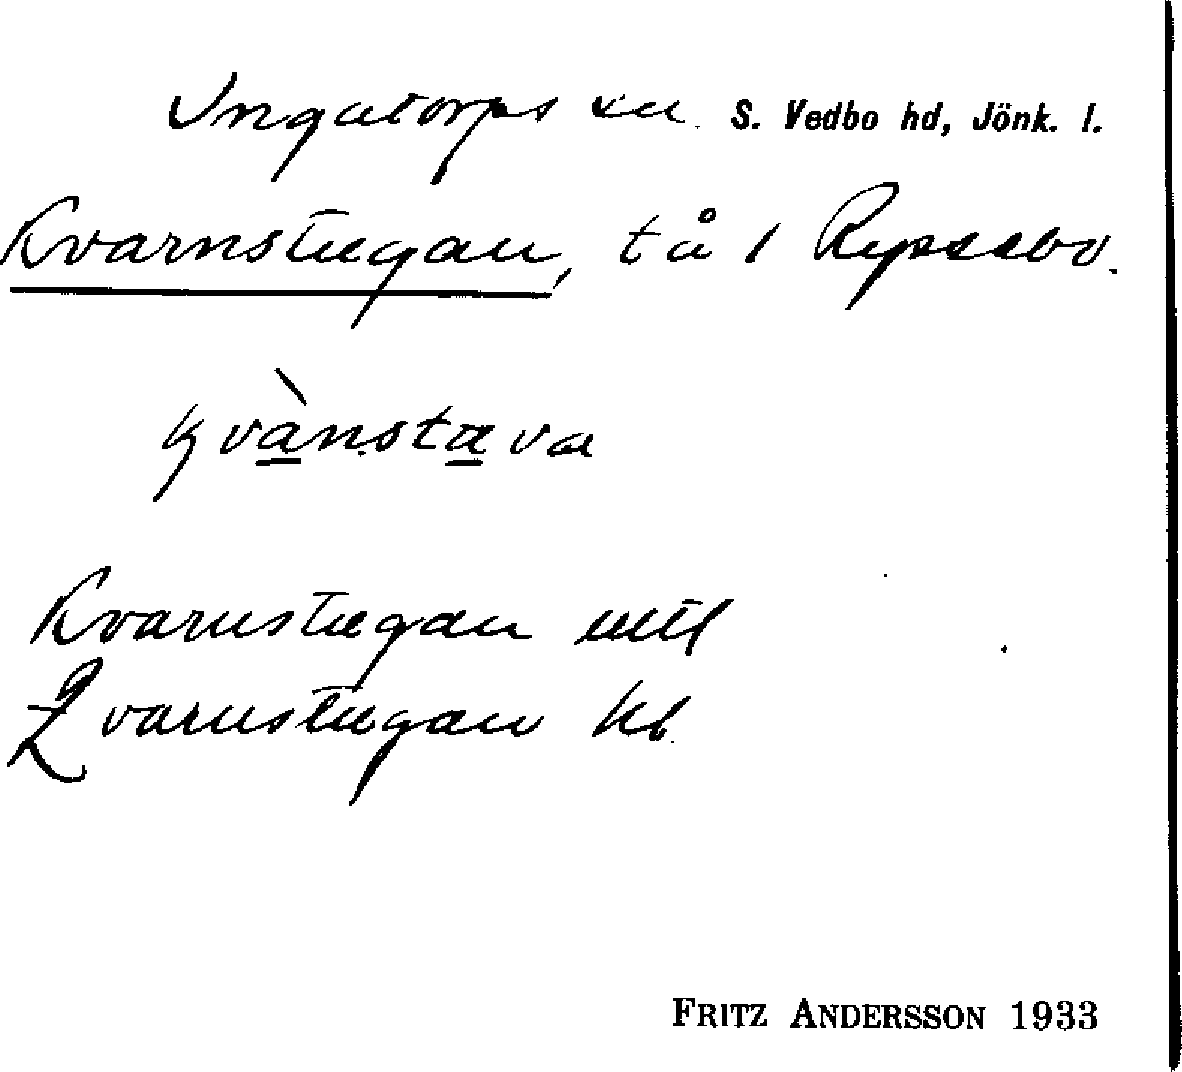 Ingatorps sn S. Vedbo hd, Jönk. l.
Kvarnstugan, tå / Rypsebo.
kvànstava
Kvarnstugan
Qvarnstugan kb
FRITZ ANDERSSON 1933